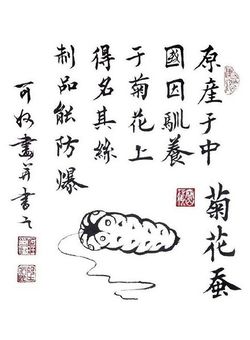 菊花蚕
原產于中
國因馴養
于菊花上
得名其絲
制品能防爆
可畫并書之